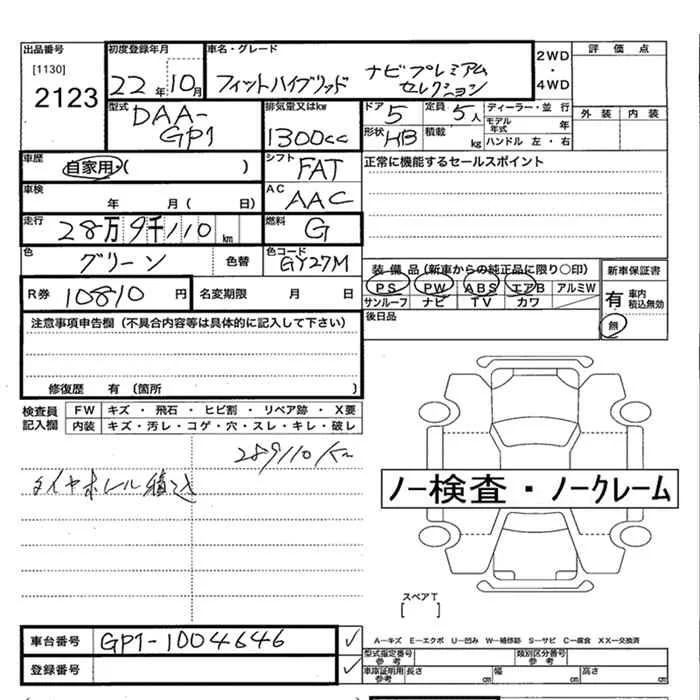 出品番号 初度登録年月 車名・グレード 2WD・4WD 評価点
[1130]
2123 22年10月 フィットハイブリッド ナビプレミアム
セレクション
型式 排気量又はkw ドア 定員 ディーラー・並行 外装 内装
DAA-
GP1 1300cc 5 5人 モデル年式 年
形状 HB 積載 kg ハンドル 左・右
車歴 自家用・( ) シフト FAT 正常に機能するセールスポイント
車検 年 月( 日) AC AAC
走行 28万9千110km 燃料 G
色 グリーン 色替 色コード GY27M
装備品(新車からの純正品に限り○印) 新車保証書
R券 10810円 名変期限 月 日 PS PW ABS エアB アルミW 有 車内積込無効
サンルーフ ナビ TV カワ 無
注意事項申告欄(不具合内容等は具体的に記入して下さい) 後日品
修復歴 有(箇所 )
検査員記入欄 FW キズ・飛石・ヒビ割・リペア跡・X要
内装 キズ・汚レ・コゲ・穴・スレ・キレ・破レ
289110km
タイヤホレル積込
ノー検査・ノークレーム
スペアT
[ ]
車台番号 GP1-1004646 ✓ A―キズ E―エクボ U―凹み W―補修跡 S―サビ C―腐食 XX―交換済
登録番号 ✓ 型式指定番号 参考 類別区分番号 参考
車庫証明用 参考 長さ cm 幅 cm 高さ cm